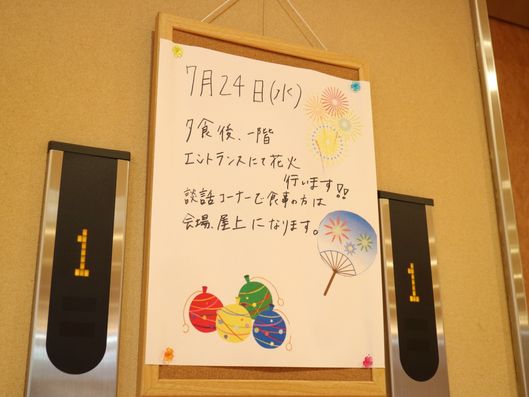 7月24日(水)
夕食後、一階
エントランスにて花火
行います!!
談話コーナーで食事の方は
会場、屋上になります。
1
1